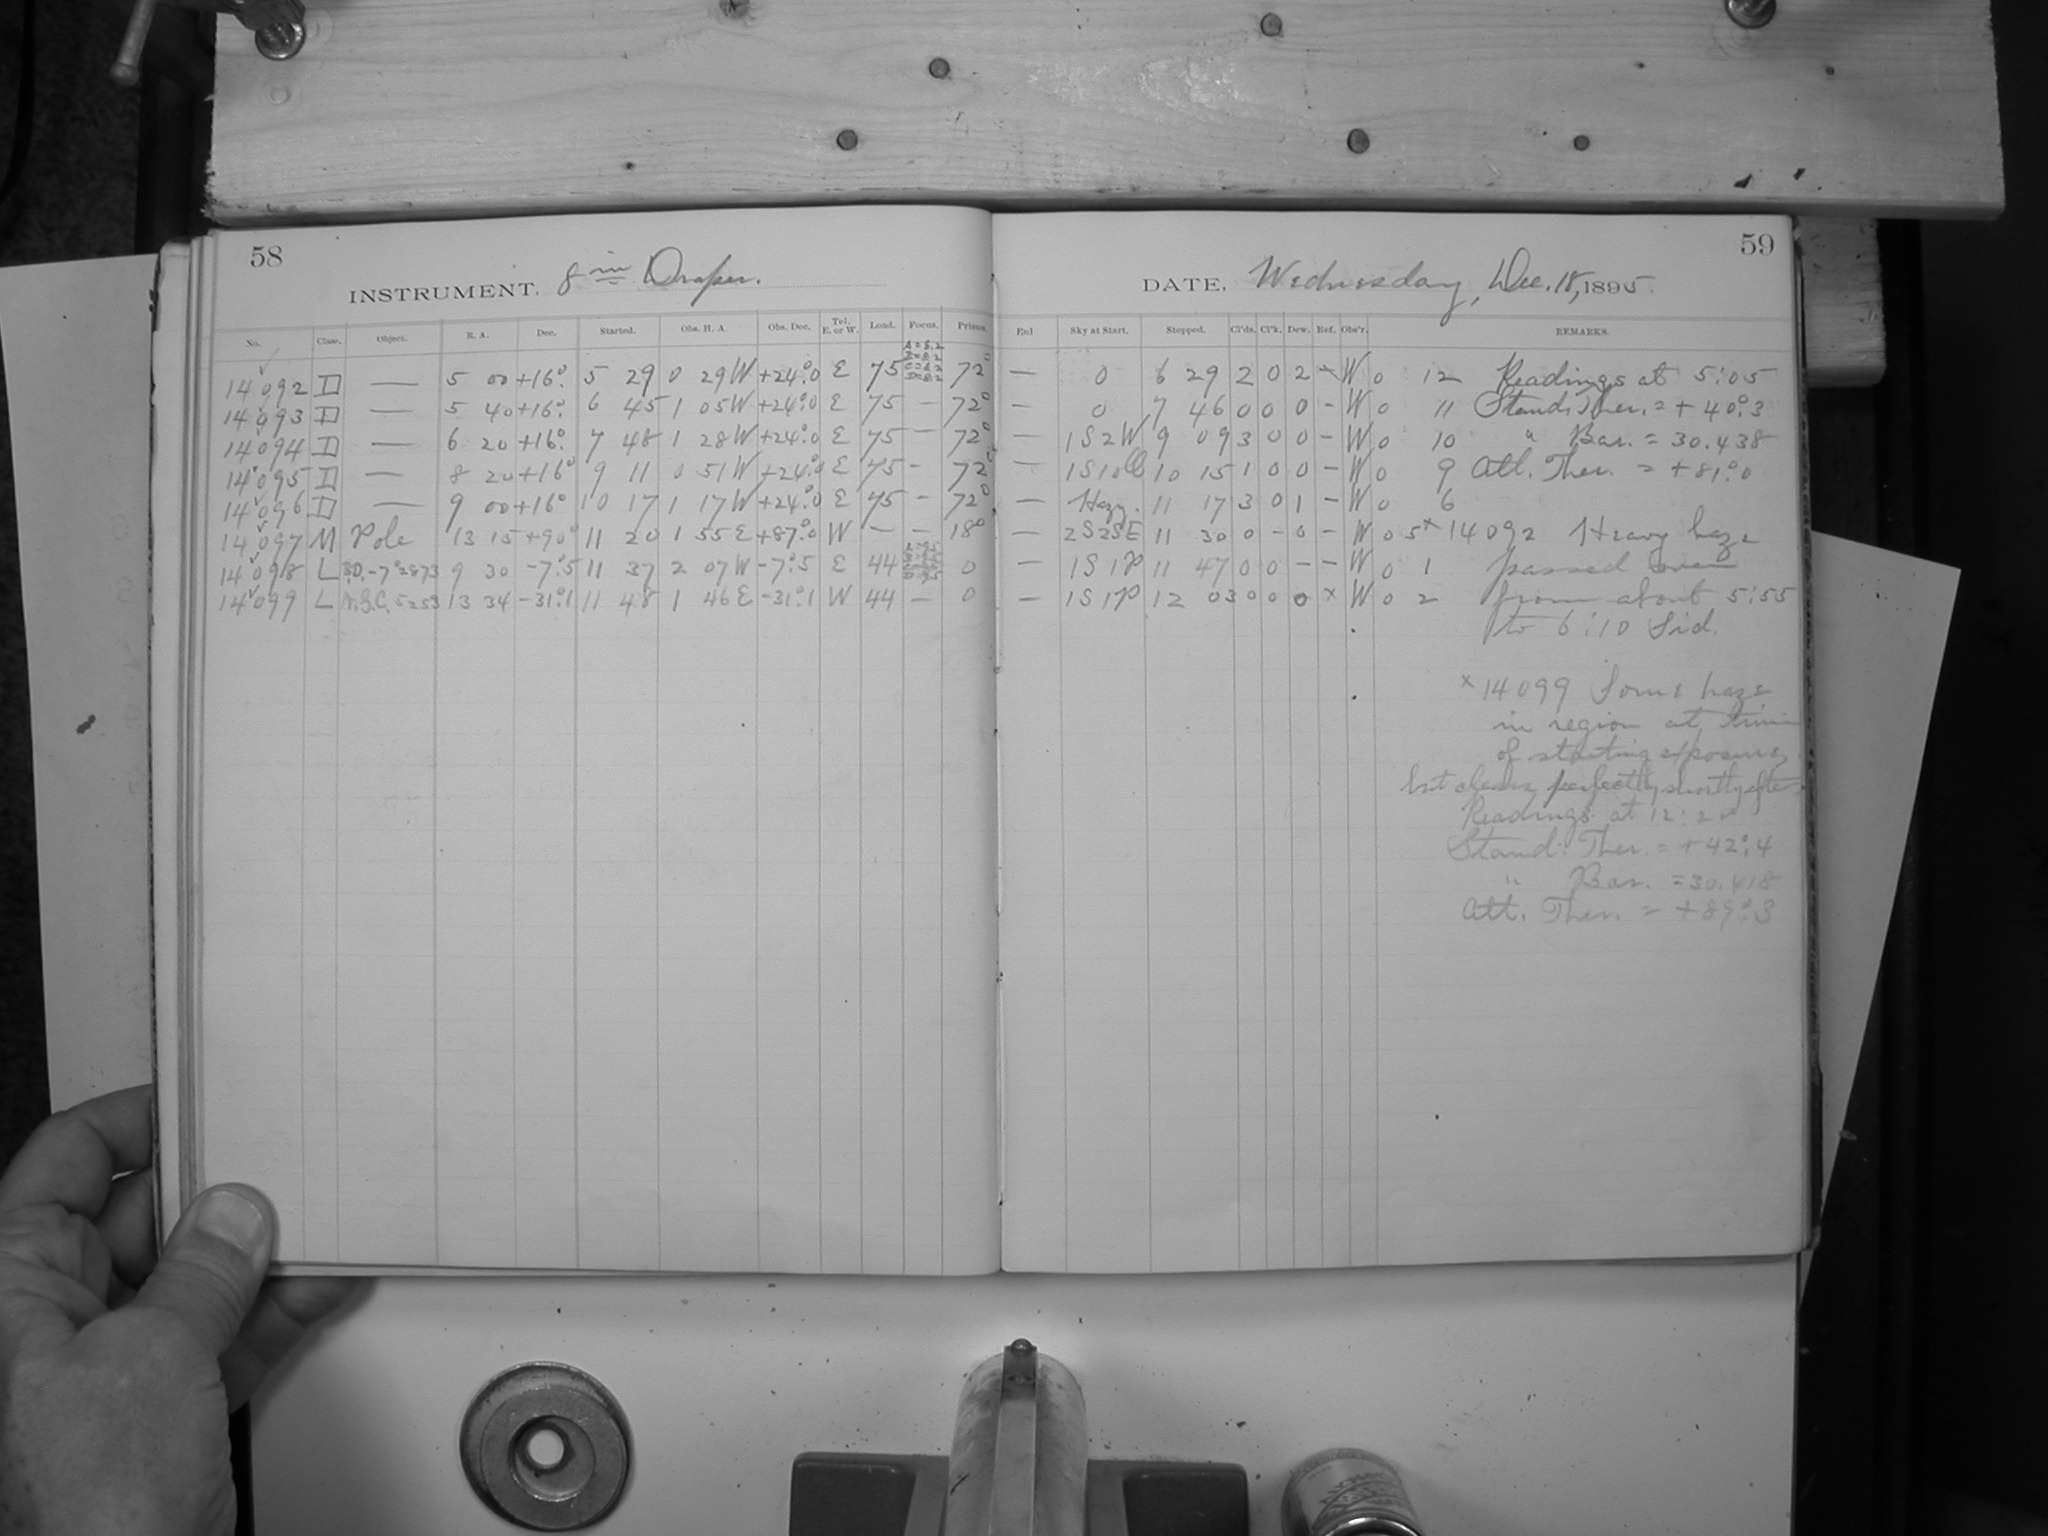 58
INSTRUMENT. 8 in Draper.
No. Class. Object. R. A. Dec. Started. Obs. H. A. Obs. Dec. Tel. E. or W. Load. Focus. Prisms.
14092 D — 5 00 +16° 5 29 0 29 W +24°.0 E 75 72°
14093 D — 5 40 +16° 6 45 1 05 W +24°.0 E 75 — 72°
14094 D — 6 20 +16° 7 48 1 28 W +24°.0 E 75 — 72°
14095 D — 8 20 +16° 9 11 0 51 W +24°.0 E 75 — 72°
14096 D — 9 00 +16° 10 17 1 17 W +24°.0 E 75 — 72°
14097 M Pole 13 15 +90° 11 20 1 55 E +87°.0 W — — 18°
14098 L B.D.-7° 2873 9 30 -7°.5 11 37 2 07 W -7°.5 E 44 0
14099 L N.G.C. 5253 13 34 -31°.1 11 48 1 46 E -31°.1 W 44 — 0
59
DATE. Wednesday, Dec. 18, 1895.
Enl Sky at Start. Stopped. Cl'ds. Cl'k. Dew. Ref. Obs'r. REMARKS.
— 0 6 29 2 0 2 × W 0 12 Readings at 5:05
— 0 7 46 0 0 0 - W 0 11 Stand. Ther. = + 40°.3
— 1S2W 9 09 3 0 0 - W 0 10 " Bar. = 30.438
— 10 15 1 0 0 - W 0 9 Att. Ther. = +81°.0
— Hazy. 11 17 3 0 1 - W 0 6
— 2S2SE 11 30 0 - 0 - W 0 5 × 14092 Heavy haze
— 1S1P 11 47 0 0 - - W 0 1 passed over
— 1S1P 12 03 0 0 0 × W 0 2 from about 5:55
to 6:10 Sid.
× 14099 Some haze
in region at time
of starting exposure,
but clear perfectly shortly after.
Readings at 12:20
Stand. Ther. = +42°.4
" Bar. = 30.418
Att. Ther. = +89°.3